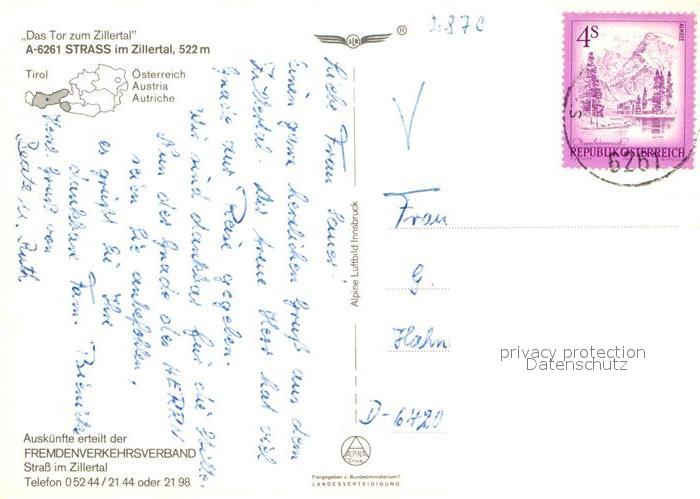 „Das Tor zum Zillertal"
A-6261 STRASS im Zillertal, 522 m
Tirol
Österreich
Austria
Autriche
287C
®
ALPINE
Alpine Luftbild Innsbruck
4S
ALMSEE
REPUBLIK ÖSTERREICH
6261
V
Frau
G.
Hahn
D-6420
privacy protection
Datenschutz
Liebe Frau
Einen ganz herzlichen Gruß aus dem
Zillertal. Der treue Herr hat viel
Gnade zur gegeben.
Wir sind dankbar für die Stille.
Nun der Gnade des HERRN
seien Sie anbefohlen,
es grüßt Sie Ihre
dankbare Fam.
Herzl. Gruß von
Beate u. Ruth
Auskünfte erteilt der
FREMDENVERKEHRSVERBAND
Straß im Zillertal
Telefon 0 52 44 / 21 44 oder 21 98
Freigegeben v. Bundesministerium f.
LANDESVERTEIDIGUNG